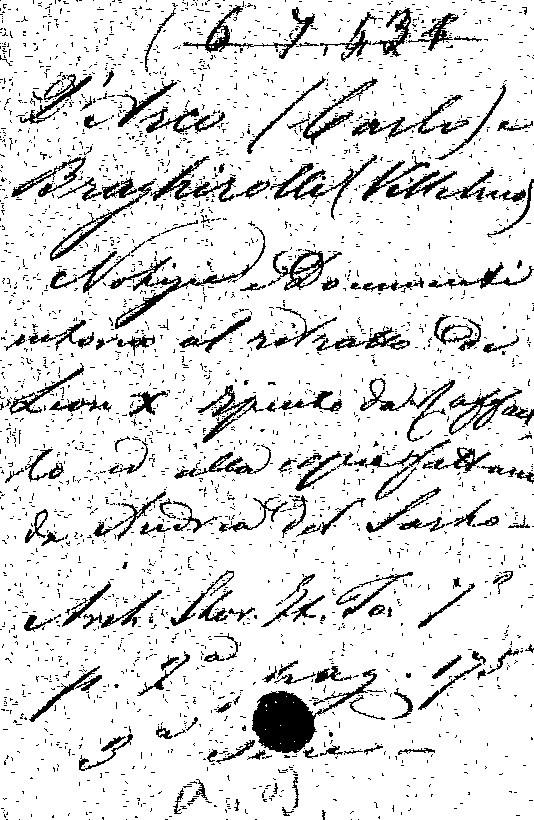 (6 7,534
D'Arco (Carlo) e
Braghirolli (Willelmo)
Notizie e Documenti
intorno al ritratto di
Leon X dipinto da Raffael
lo ed alla copia fattane
da Andrea del Sarto -
Arch. Stor. It. To. 7°
p. 2ª pag. 175
3ª Serie -